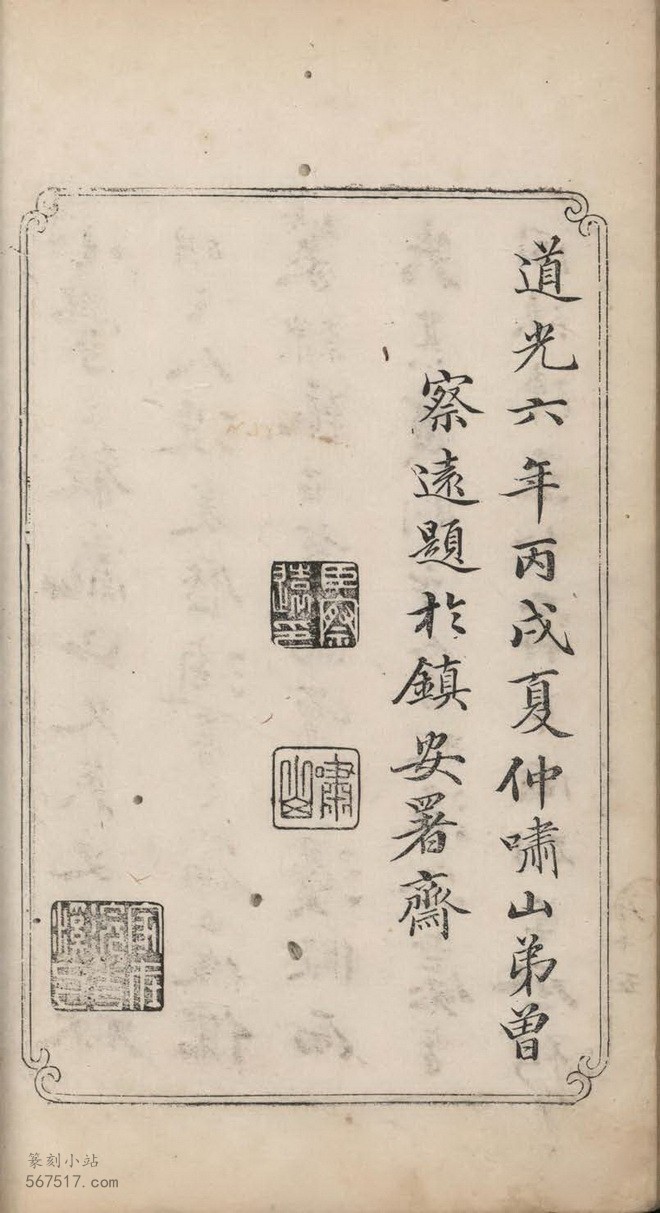 道光六年丙戌夏仲嘯山弟曾
察遠題於鎮安署齋
嘯山
篆刻小站
567517.com